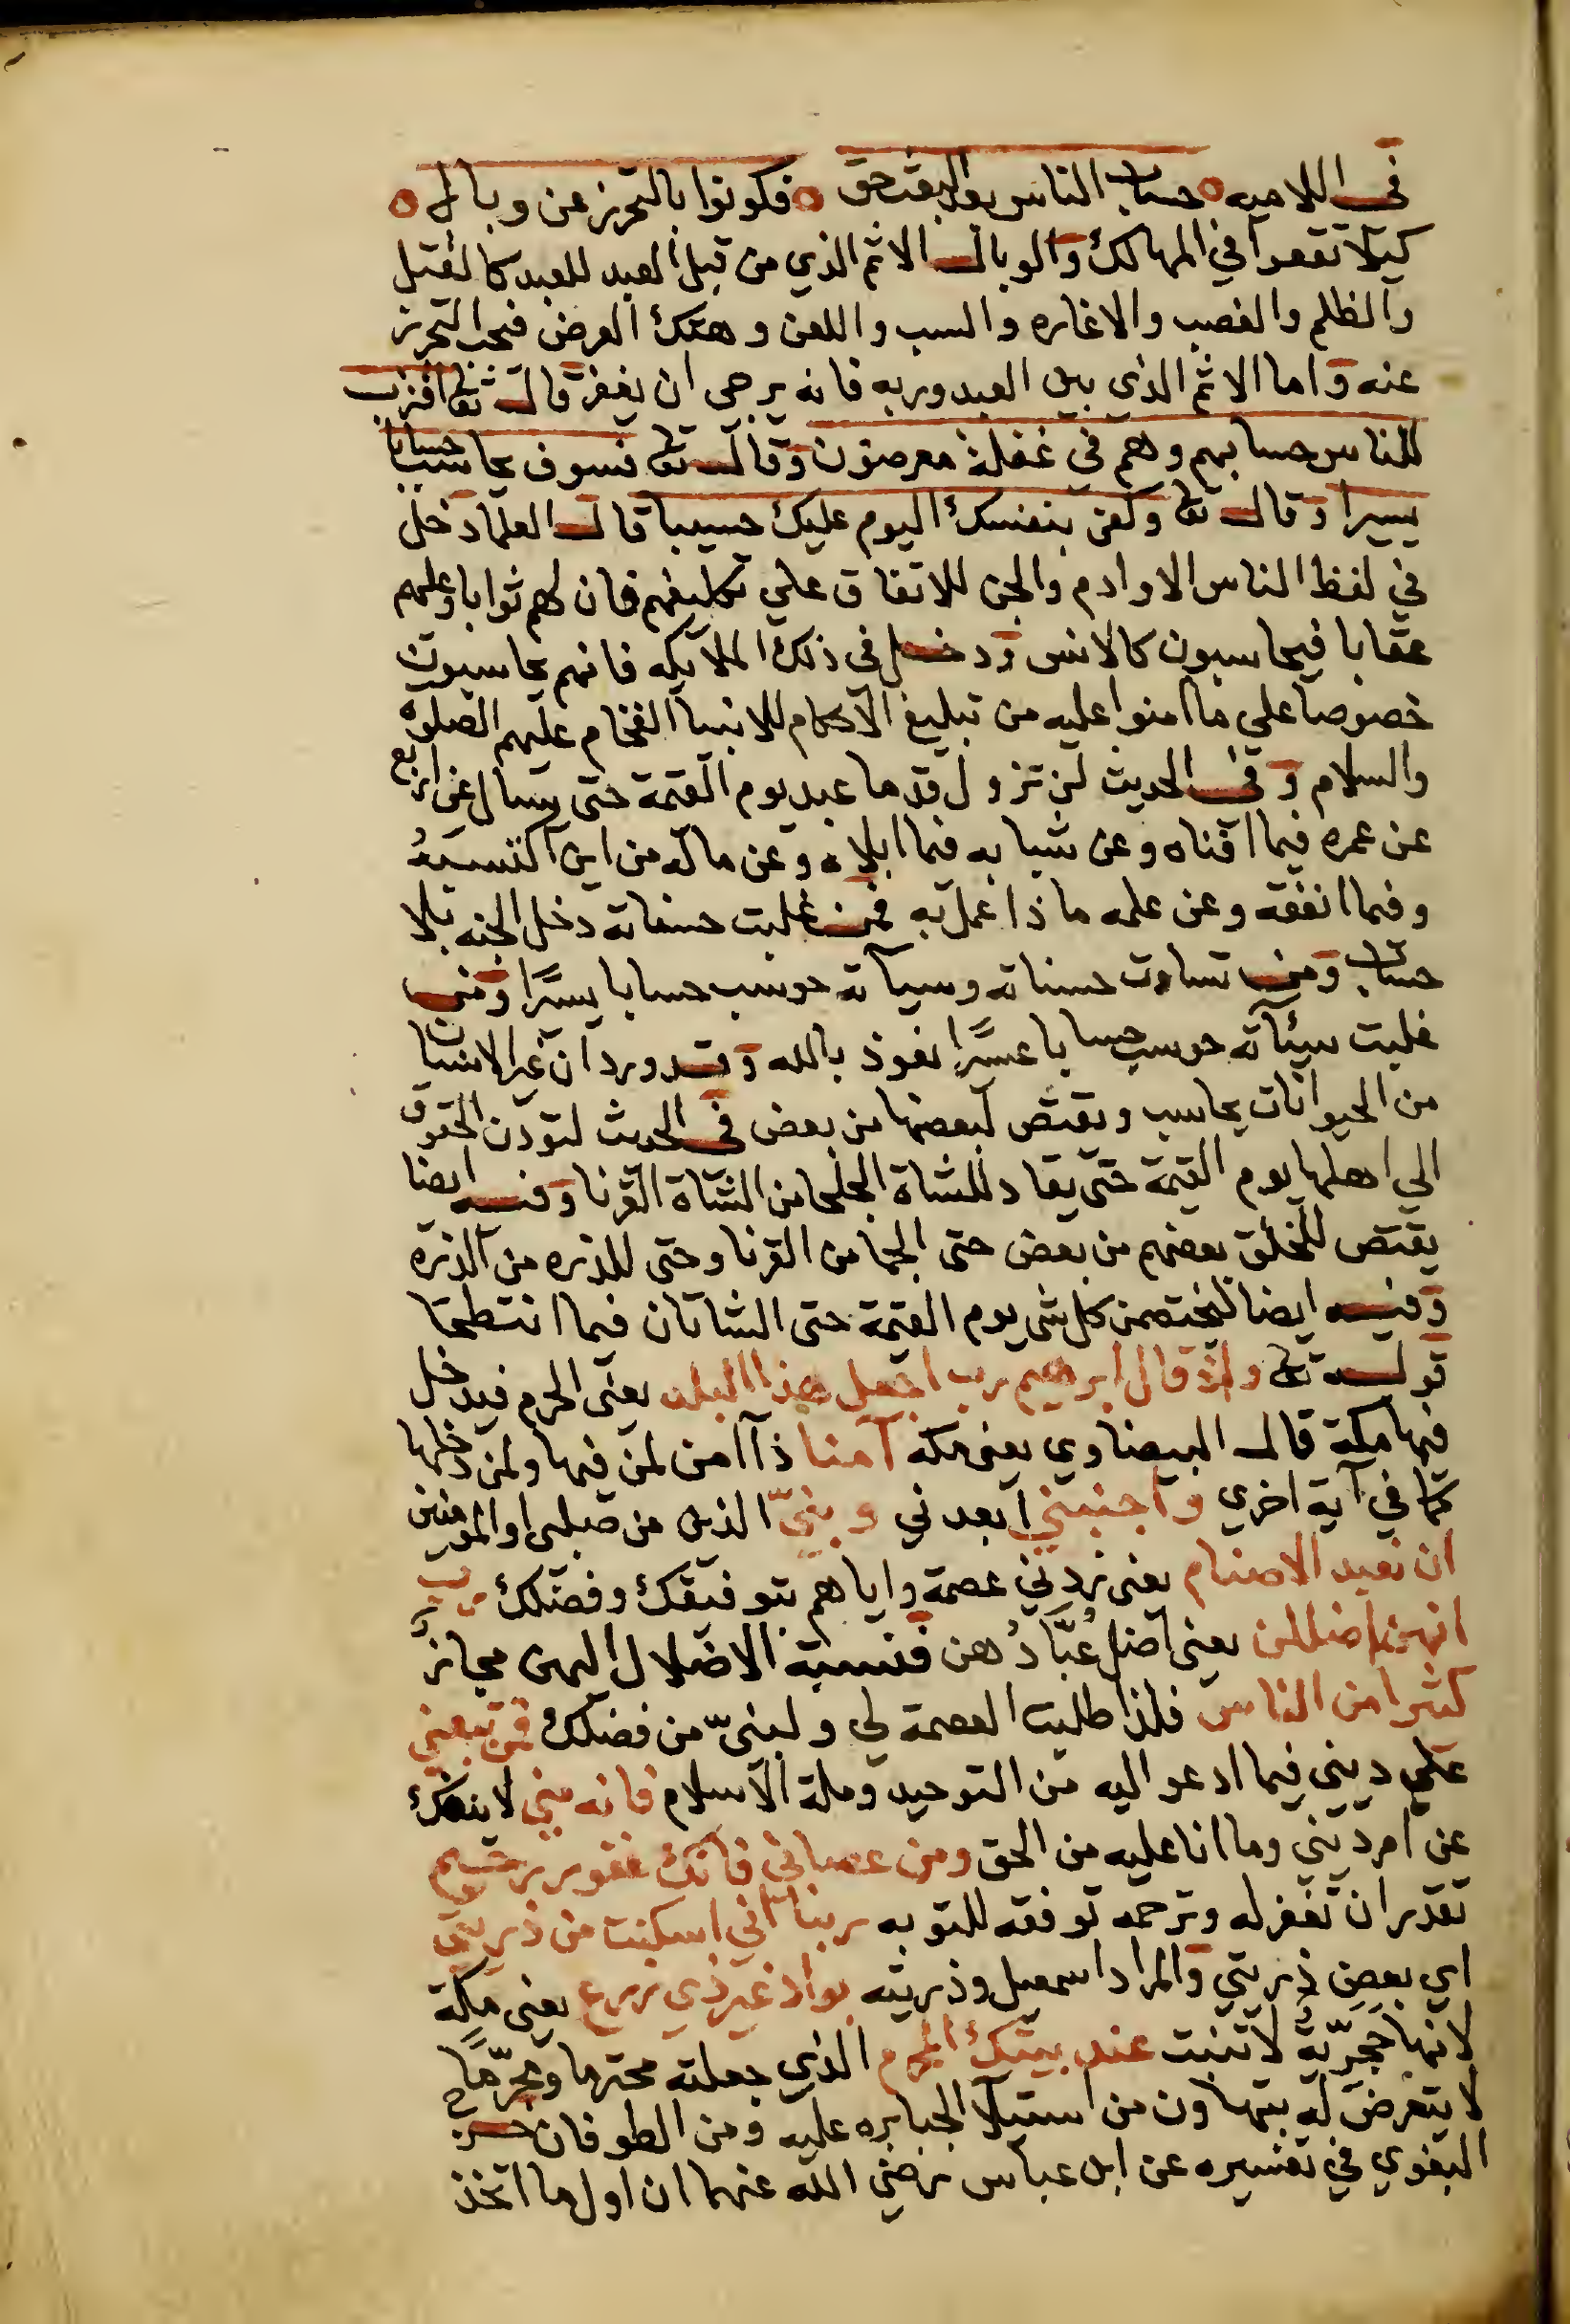 في اللاميه ه حساب الناس بعد البعث حق ه فكونوا بالتحرز عن وبال ه
كيلا تقعوا في المهالك والوبال الاثم الذي من قبل العبد للعبد كالقتل
والظلم والغصب والاغاره والسب واللعن وهتك العرض فيجب التحرز
عنه واما الاثم الذي بين العبد وربه فانه يرجي ان يغفر قال تعا اقترب
للناس حسابهم وهم في غفلة معرضون وقال تعا فسوف يحاسب حسابا
يسيرا وقال تعا وكفى بنفسك اليوم عليك حسيبا قال العلما دخل
في لفظ الناس الاوادم والجن للاتفاق علي تكليفهم فان لهم ثوابا وعليهم
عقابا فيحاسبون كالانس ودخل في ذلك الملايكه فانهم يحاسبون
خصوصا علي ما امنوا عليه من تبليغ الاحكام للانبيا الفخام عليهم الصلوة
والسلام وفي الحديث لن تزول قدما عبد يوم القيمة حتى يسال عن اربع
عن عمره فيما افناه وعن شبابه فيما ابلاه وعن ماله من اين اكتسبه
وفيما انفقه وعن علمه ماذا عمل به فمن غلبت حسناته دخل الجنه بلا
حساب ومن تساوت حسناته وسيآته حوسب حسابا يسيرا ومن
غلبت سيئآته حوسب حسابا عسيرا نعوذ بالله وقد ورد ان غير الانسان
من الحيوانات يحاسب ويقتص لبعضها من بعض في الحديث لتودن الحقوق
الي اهلها يوم القيمة حتى يقاد للشاة الجلحا من الشاة القرنا وفيه ايضا
يقتص للخلق بعضهم من بعض حتى الجما من القرنا وحتى للذره من الذره
وفيه ايضا ليختصمن كل شى يوم القيمة حتى الشاتان فيما انتطحتا
قوله تعا واذ قال ابرهيم رب اجعل هذا البلد يعنى الحرم فيدخل
فيها مكة قال البيضاوي يعنى مكه آمنا ذا امن لمن فيها ولمن دخلها
كما في آية اخري واجنبني ابعدني وبنيّ الذين من صلبى او المومنين
ان نعبد الاصنام يعنى زدني عصمة واياهم بتوفيقك وفضلك رب
انهن اضللن يعنى اضل عُبّادُهن فنسبة الاضلال اليهن مجازٌ
كثيرا من الناس فلذا طلبت العصمة لي ولبنيّ من فضلك فمن تبعني
علي ديني فيما ادعو اليه من التوحيد وملة الاسلام فانه مني لا ينفك
عن امر ديني وما انا عليه من الحق ومن عصاني فانك غفور رحيم
تقدر ان تغفر له وترحمه توفقه للتوبه ربنا اني اسكنت من ذريتي
اي بعض ذريتي والمراد اسمعيل وذريته بواد غير ذي زرع يعنى مكة
لانها حَجَرِيّةٌ لا تنبت عند بيتك المحرم الذي جعلته محترما ومحرّمًا
لا يتعرض له بتهاون من استيلا الجبابره عليه ومن الطوفان
البغوي في تفسيره عن ابن عباس رضي الله عنهما ان اول ما اتخذ